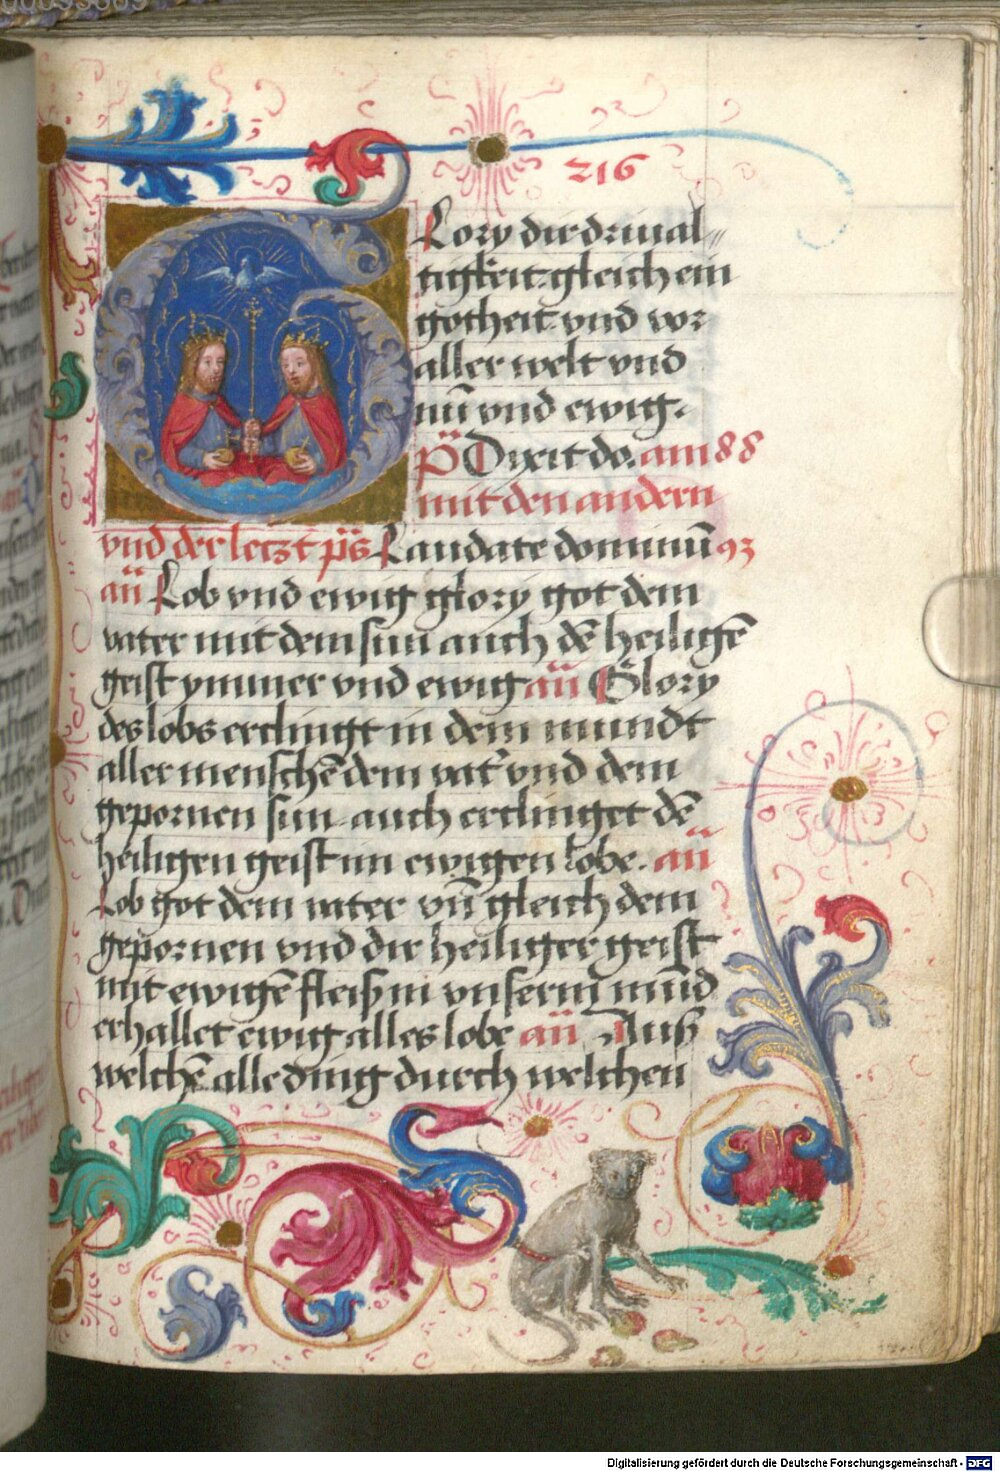 216
Glory dir drival⸗
tigkeit gleich ein
gotheit vnd vor
aller welt vnd
nū vnd ewig.
p̄s Dixit do. am 88
mit den andern
vnd der leczt p̄s Laudate dominū 93
an̄ Lob vnd ewig glory got dem
vater mit dem sun auch dē heiligē
geist ymmer vnd ewig an̄ Glory
des lobs erclingt in dem mundt
aller menschē dem vat' vnd dem
gepornen sun auch erclinget dē
heiligen geist im ewigen lobe. an̄
Lob got dem vater vn̄ gleich dem
gepornen vnd dir heiliger geist
mit ewigē fleiß in vnserm mūd
erhallet ewig alles lobe an̄ Auß
welchē alle ding durch welchen
Digitalisierung gefördert durch die Deutsche Forschungsgemeinschaft - DFG